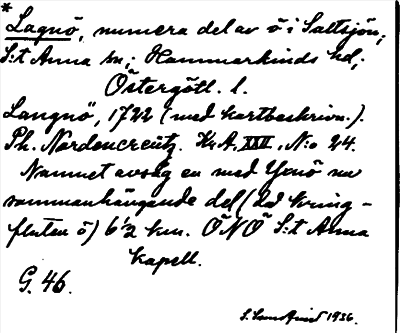 * Lagnö, numera del av ö i Saltsjön,
S:t Anna sn; Hammarkinds hd;
Östergötl. l.
Langnö, 1722 (med kartbeskrivn.).
Ph. Nordencreutz. Kr. A. XXII. N:o 24.
Namnet avsåg en med Yxnö nu
sammanhängande del (då kring-
fluten ö) 6 1/2 km. ÖNÖ S:t Anna
kapell.
G. 46.
1936.